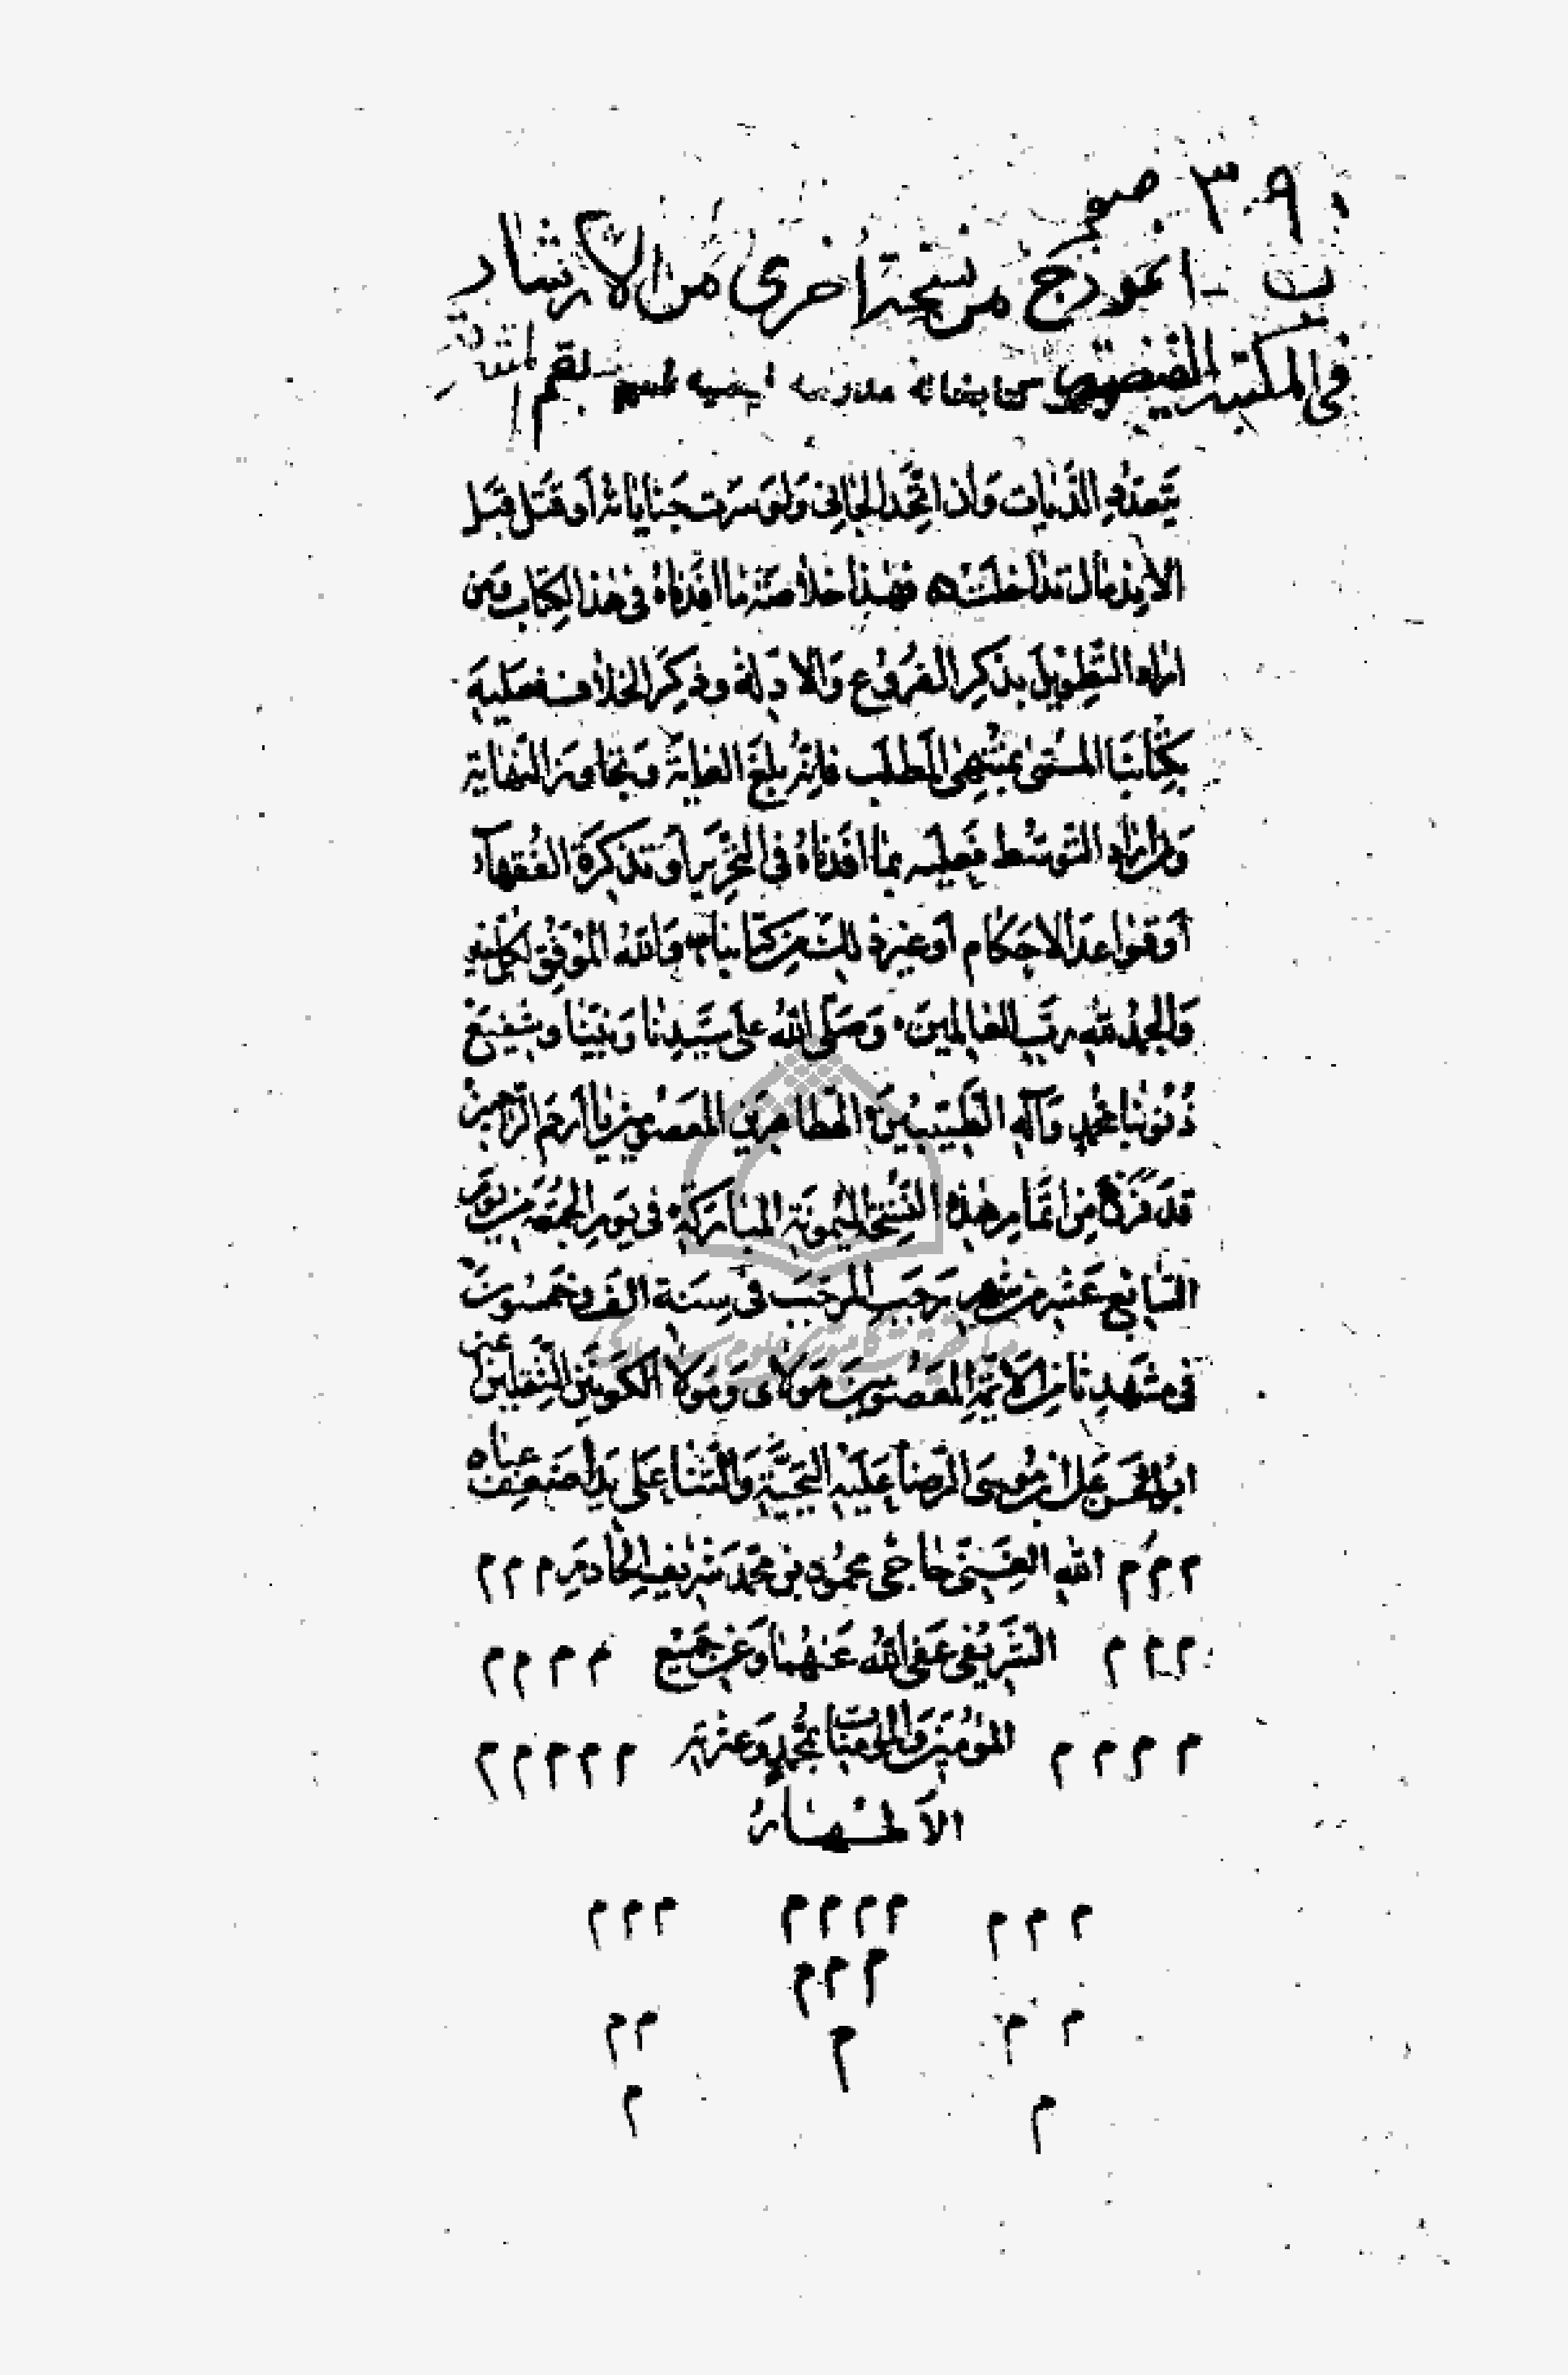 ٣٠٩ صو
ب - انموذج من نسخة أخرى من الارشاد
فى المكتبة الفيضية كتابخانه مدرسه فيضيه بقم
يتعدد الدّيات وَان اتّحد الجانى وَلو سَرت جَنايَاته أو قَتَل قبَل
الاندمال تداخلت فهٰذا خلاصَة مَا افدناهُ فى هٰذا الكِتاب ومَن
اراد التَّطويل بذكر الفرُوع وَالادِلة وذكِر الخلاف فعَليهِ
بِكِتابِنَا المُسمّى بمُنتهى المَطلب فانّه بلغَ الغايَة وتجاوز النهايَة
وَمن اراد التّوسُّط فَعليه بما افدناهُ فى التحرير أو تذكرة الفُقهآء
أو قواعد الاحكام أو غير ذلك من كتابنا وَاللهُ المُوفّق لكل خير
وَالحمد لله ربّ العٰالمين وَصَلّى اللهُ على سيّدِنا وَنبيّنا وشفيع
ذُنوبنا محمّد وَآله الطيّبين الطاهرين المعصُومين يا أرحم الرّاحمين
قد فرغ من اتمام هذه النسخة الميمونة المباركة فى يوم الجمعة من يوم
السّابع عَشر من شهر رَجَب المرجّب فى سنة الف وخمسون
فى مشهد ثامن الائمّة المعصُومين مَولاى وَمَولا الكونين الثقلين
ابو الحسن على ابن موسى الرّضا عليه التحيّة وَالثنا على يد اضعف عباد
م م م الله الغنى حاجى محمود بن محمّد شريف الخادم م م م
م م م الشريفى عفى الله عنهما وعن جميع م م م م
م م م م المؤمنين والمؤمنات بمحمّد وعترته م م م م م
الاطهار
م م م م م م م م م م
م م م
م م م م م
م م